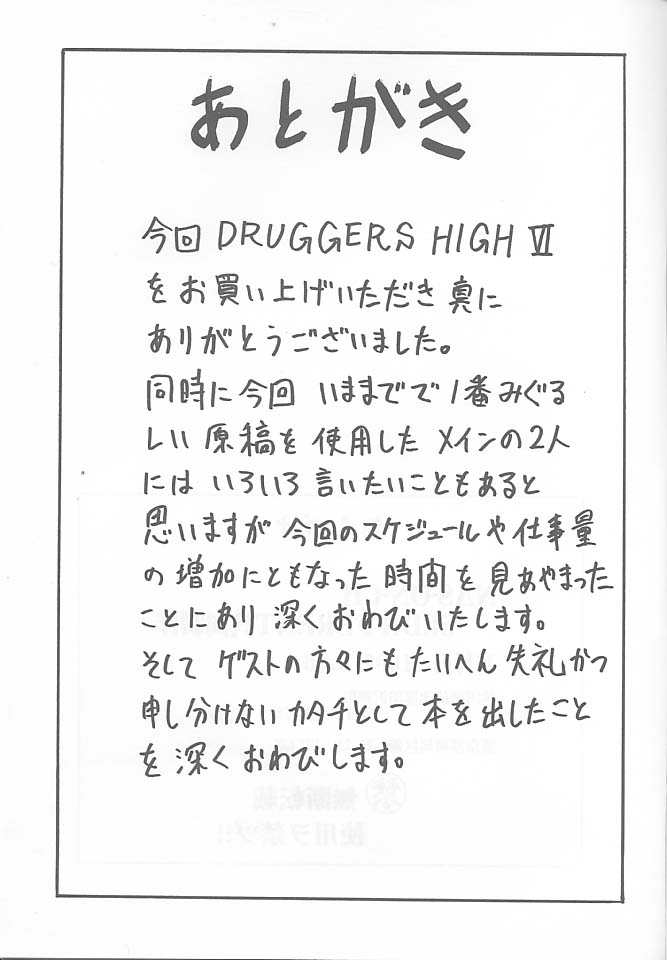 あとがき
今回 DRUGGERS HIGH Ⅵ
をお買い上げいただき 真に
ありがとうございました。
同時に今回 いままでで1番みぐる
しい 原稿を 使用した メインの2人
には いろいろ言いたいこともあると
思いますが 今回のスケジュールや仕事量
の 増加にともなった 時間を 見あやまった
ことにあり 深く おわびいたします。
そして ゲストの方々にもたいへん 失礼かつ
申し分けない カタチとして 本を 出したこと
を 深く おわびします。
無断転載
使用ヲ禁ヅ!!